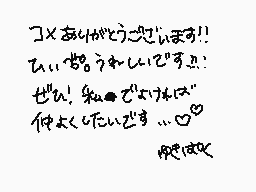 コメありがとうございます!!
ひぃぃうれしいです!!!
ぜひ!私でよければ
仲よくしたいです…♡♡
ゆきぱく